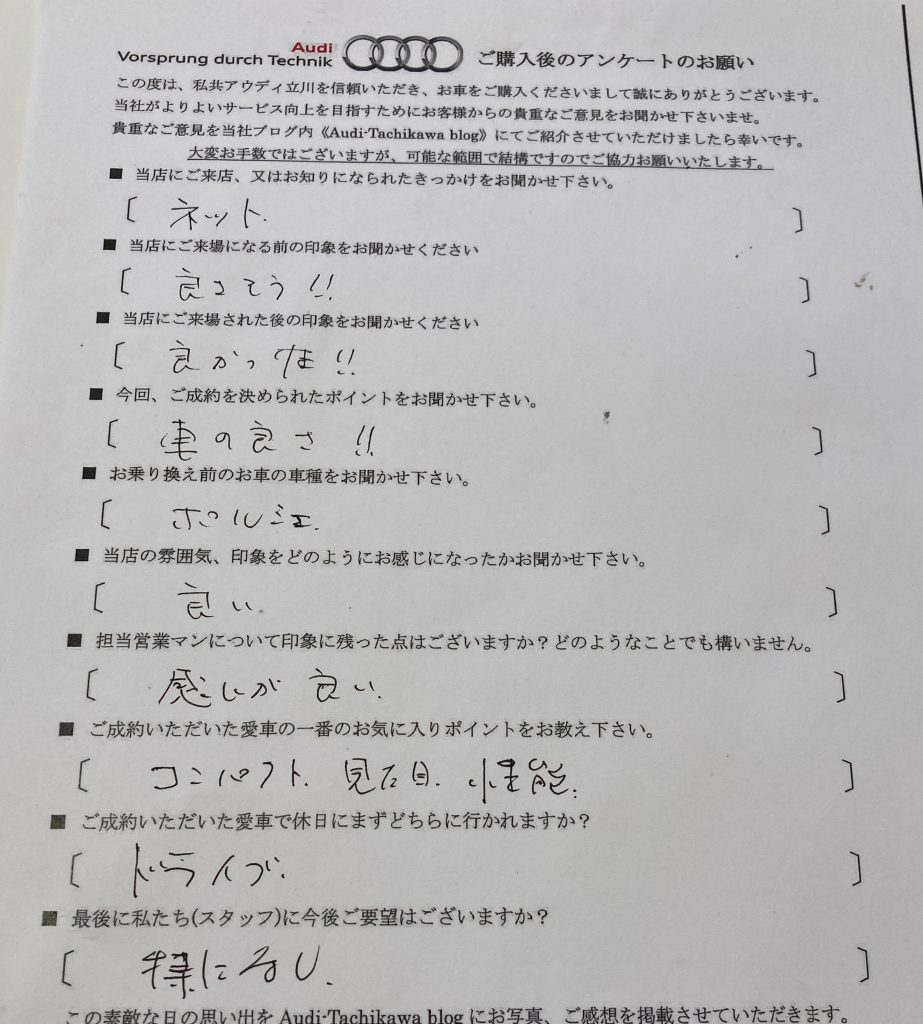 Audi
Vorsprung durch Technik ご購入後のアンケートのお願い
この度は、私共アウディ立川を信頼いただき、お車をご購入くださいまして誠にありがとうございます。
当社がよりよいサービス向上を目指すためにお客様からの貴重なご意見をお聞かせ下さいませ。
貴重なご意見を当社ブログ内《Audi-Tachikawa blog》にてご紹介させていただけましたら幸いです。
大変お手数ではございますが、可能な範囲で結構ですのでご協力お願いいたします。
■ 当店にご来店、又はお知りになられたきっかけをお聞かせ下さい。
[ ネット. ]
■ 当店にご来場になる前の印象をお聞かせください
[ 良さそう!! ]
■ 当店にご来場された後の印象をお聞かせください
[ 良かったな!! ]
■ 今回、ご成約を決められたポイントをお聞かせ下さい。
[ 車の良さ!! ]
■ お乗り換え前のお車の車種をお聞かせ下さい。
[ ポルシェ. ]
■ 当店の雰囲気、印象をどのようにお感じになったかお聞かせ下さい。
[ 良い. ]
■ 担当営業マンについて印象に残った点はございますか？どのようなことでも構いません。
[ 感じが良い. ]
■ ご成約いただいた愛車の一番のお気に入りポイントをお教え下さい。
[ コンパクト. 見た目. 性能. ]
■ ご成約いただいた愛車で休日にまずどちらに行かれますか？
[ ドライブ. ]
■ 最後に私たち(スタッフ)に今後ご要望はございますか？
[ 特になし. ]
この素敵な日の思い出を Audi-Tachikawa blog にお写真、ご感想を掲載させていただきます。